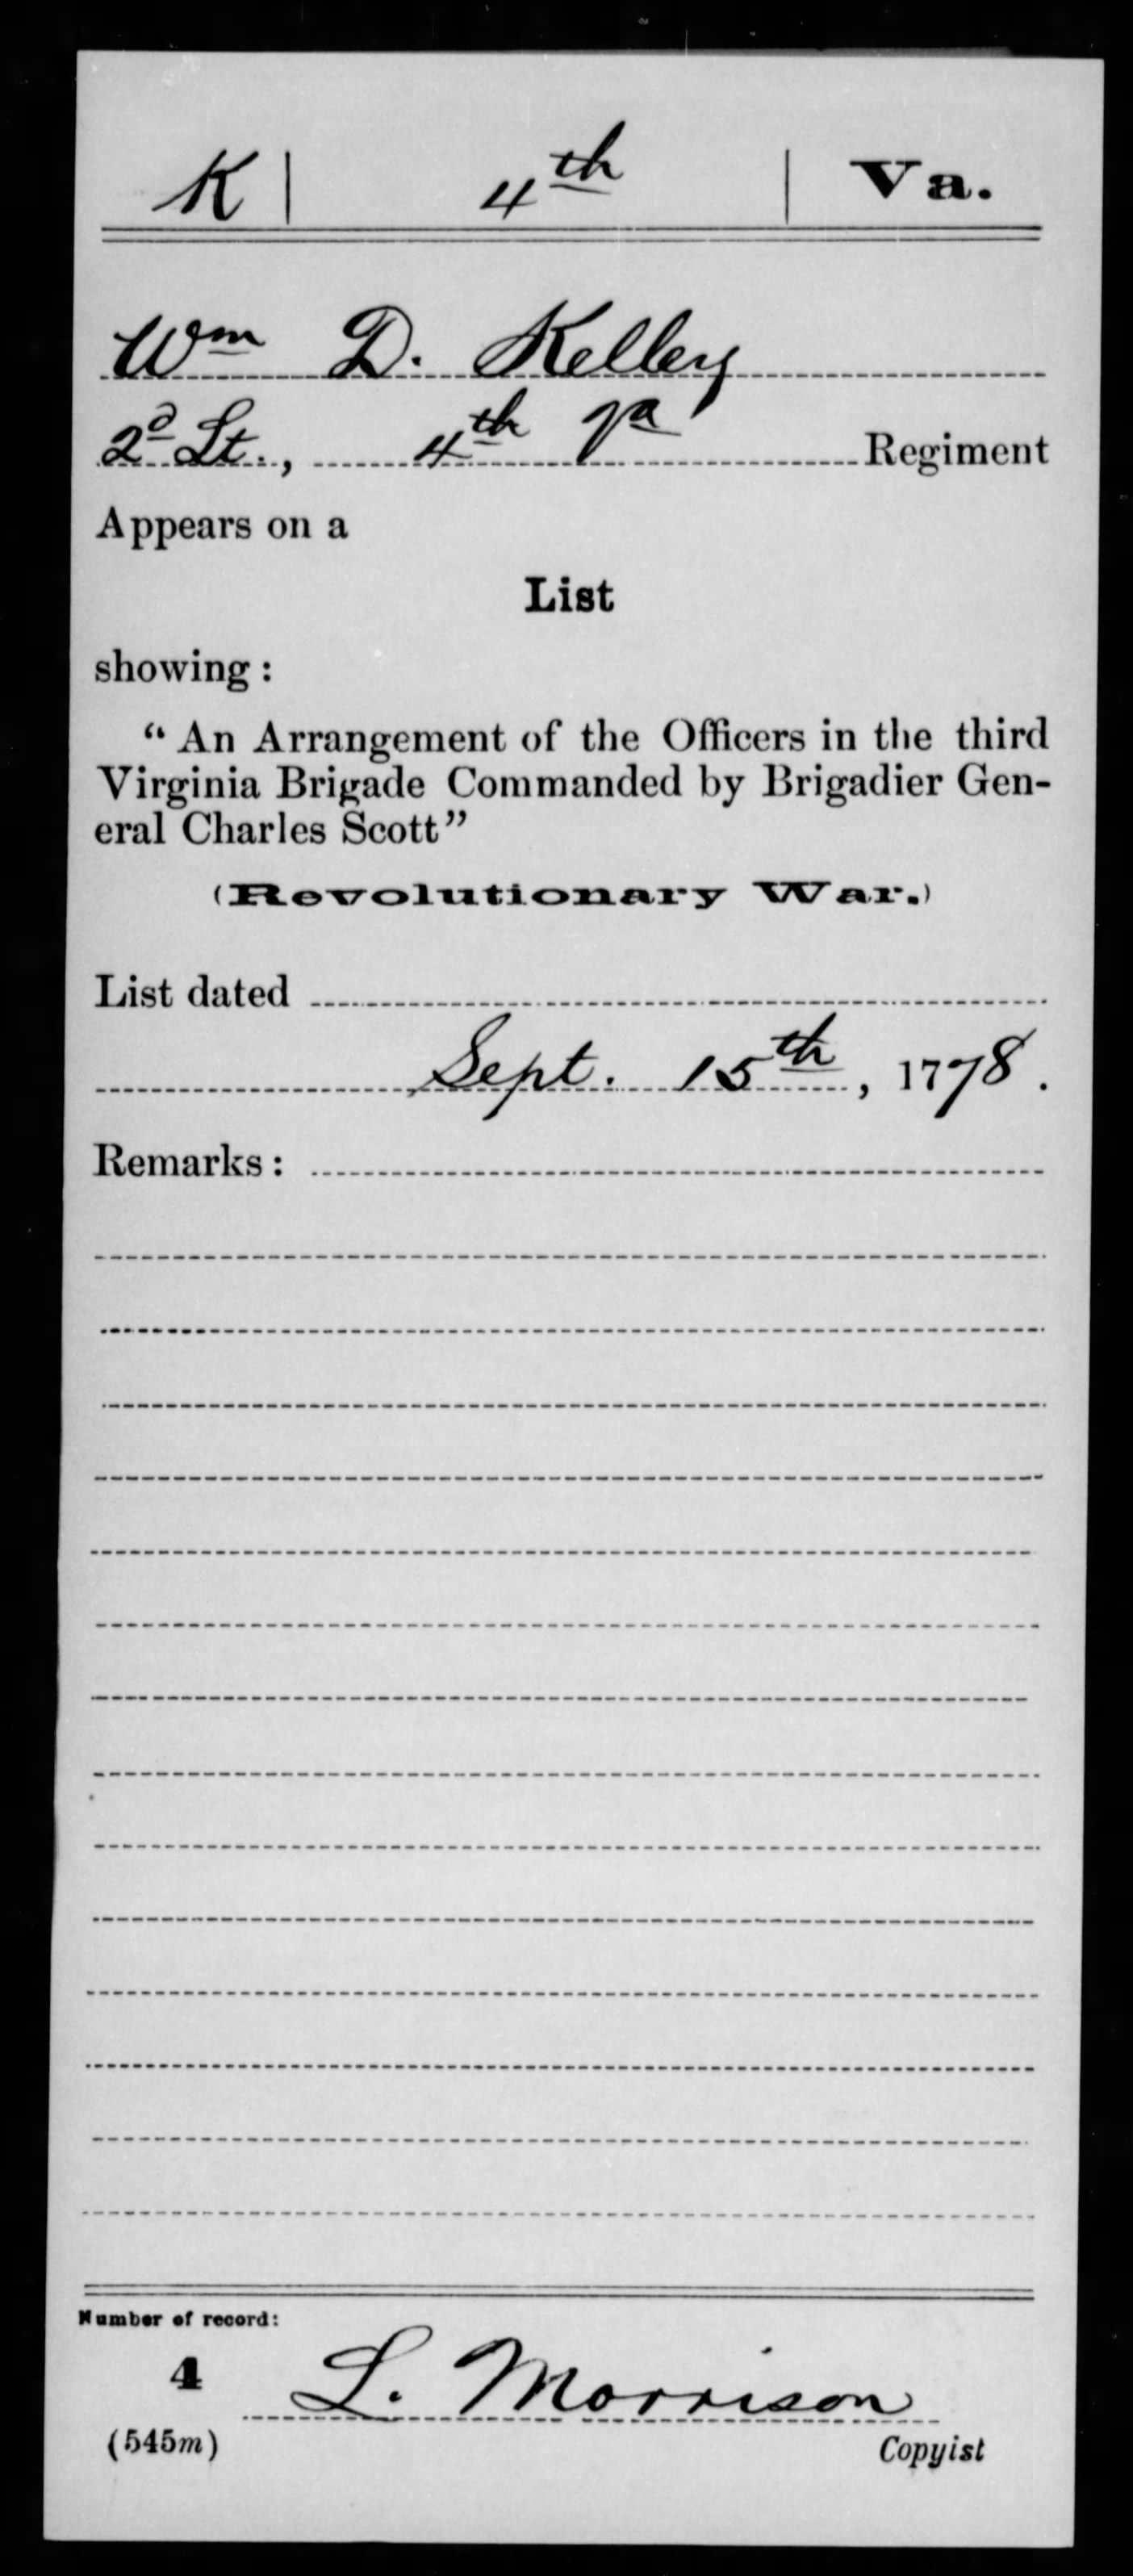 K | 4th | Va.
Wm D. Kelley
2d Lt., 4th Va Regiment
Appears on a
List
showing:
“An Arrangement of the Officers in the third
Virginia Brigade Commanded by Brigadier Gen-
eral Charles Scott”
(Revolutionary War.)
List dated
Sept. 15th, 1778.
Remarks:
Number of record:
4 L. Morrison
(545m) Copyist